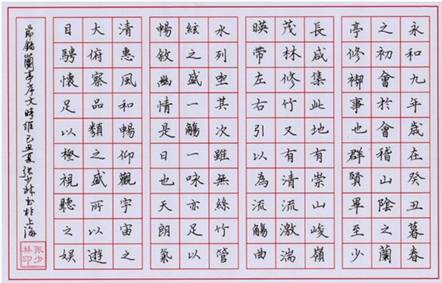 永和九年歲在癸丑暮春
之初會於會稽山陰之蘭
亭修禊事也群賢畢至少
長咸集此地有崇山峻嶺
茂林修竹又有清流激湍
暎帶左右引以為流觴曲
水列坐其次雖無絲竹管
絃之盛一觴一詠亦足以
暢敘幽情是日也天朗氣
清惠風和暢仰觀宇宙之
大俯察品類之盛所以遊
目騁懷足以極視聽之娛
節錄蘭亭序文時維己丑夏張少林書於上海
張少林印